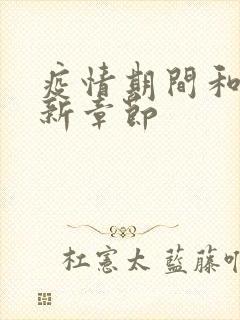 疫情期間和
新章節
杜憲太 藍藤